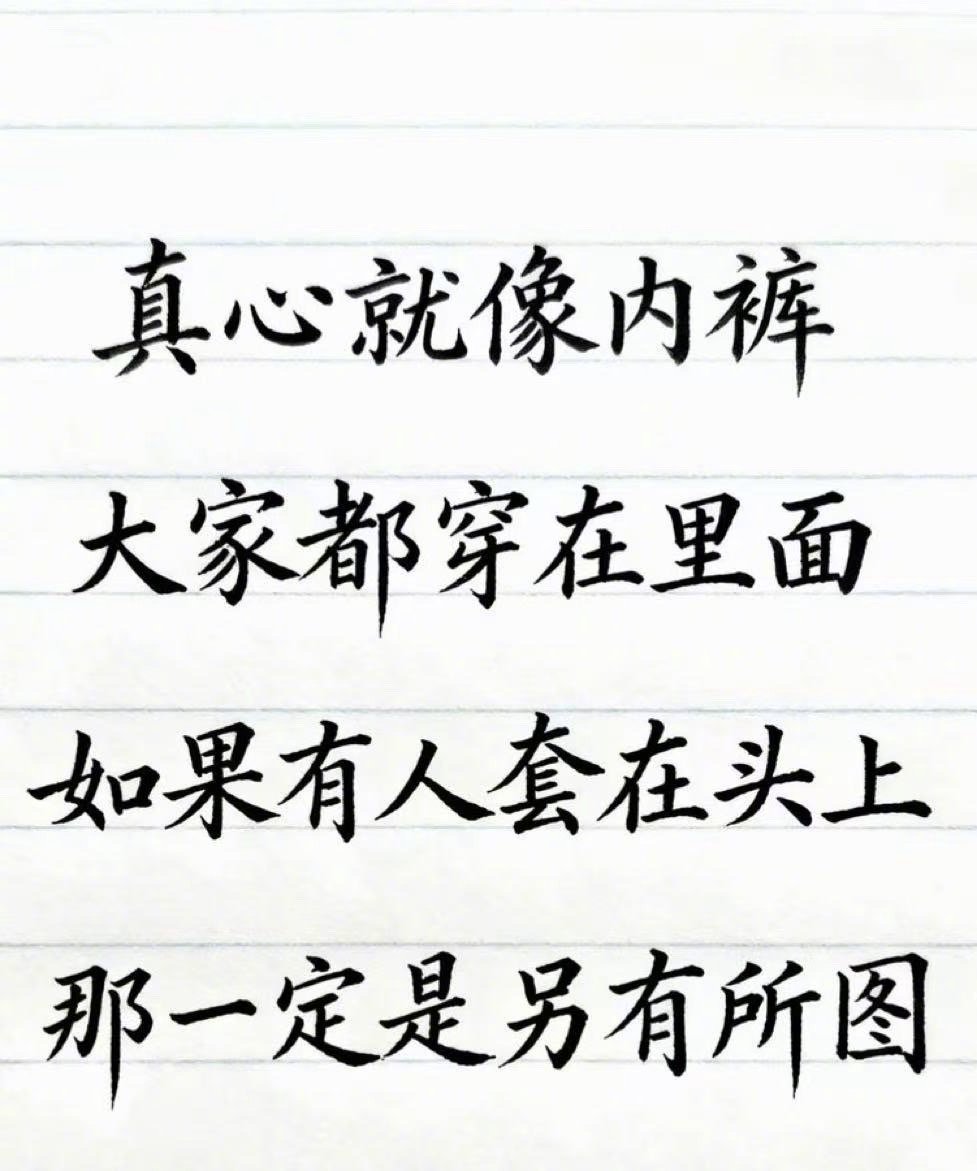 真心就像内裤
大家都穿在里面
如果有人套在头上
那一定是另有所图